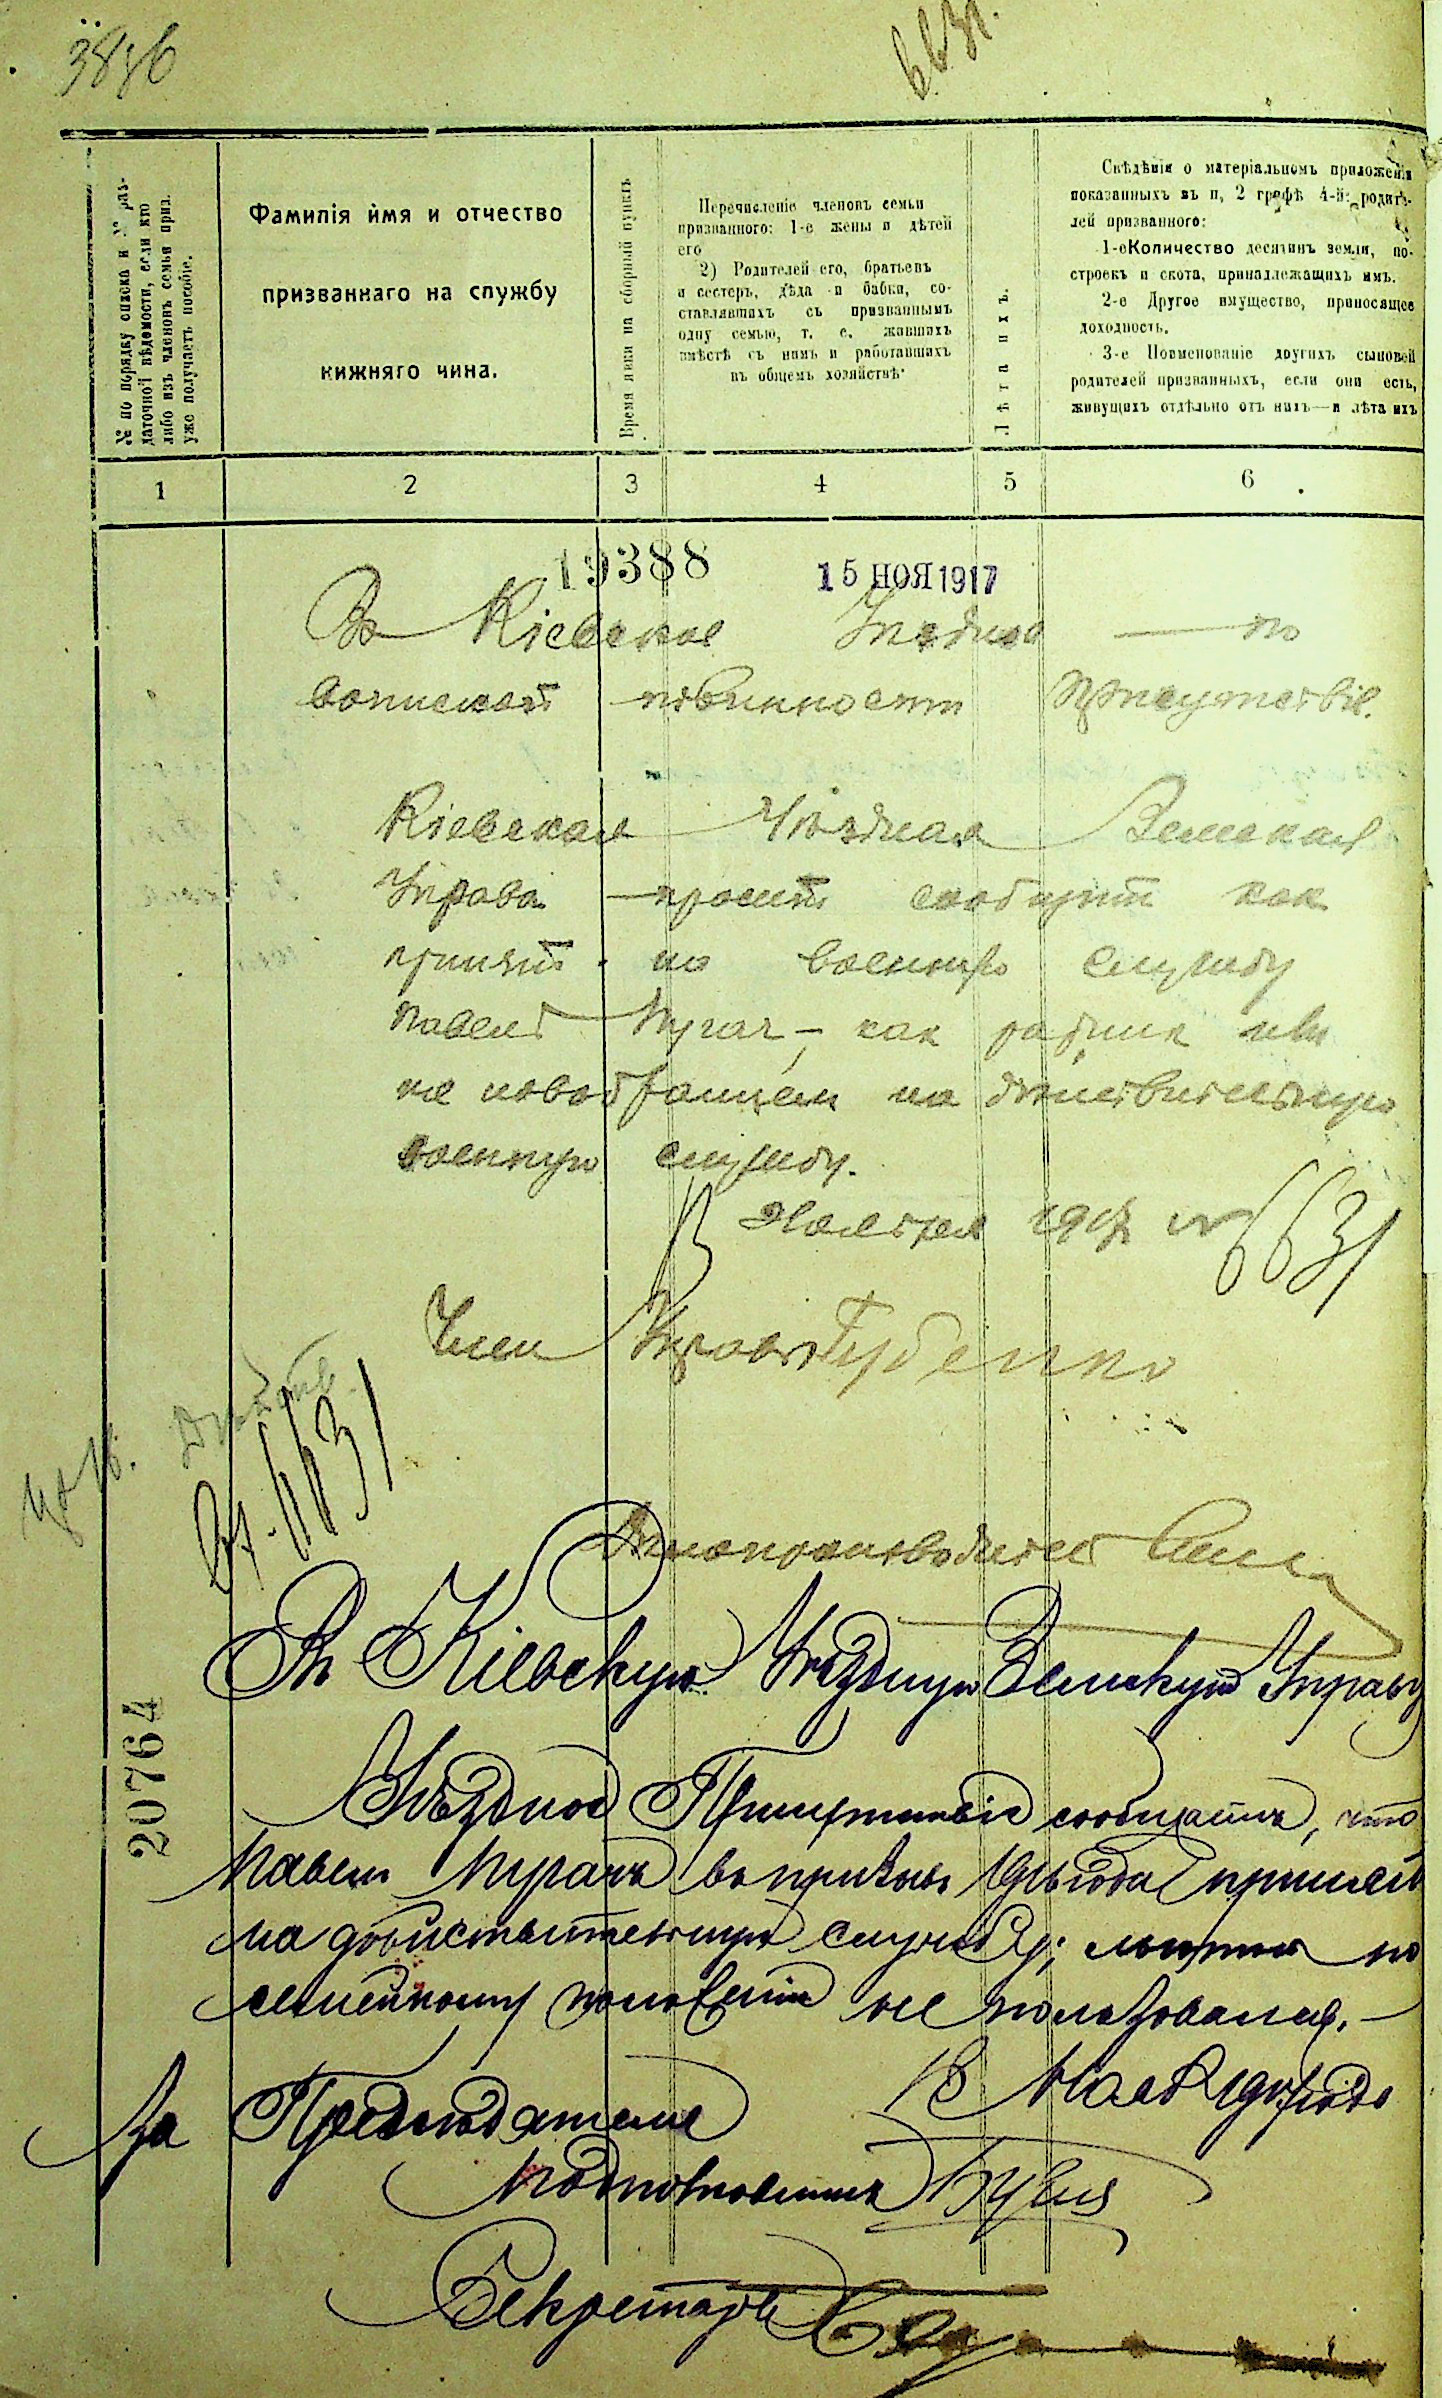 3836
6631.
№ по порядку списка и № раз-
даточной вѣдомости, если кто
либо изъ членовъ семьи приз.
уже получаетъ пособіе.
Фамилія имя и отчество
призваннаго на службу
нижняго чина.
Время явки на сборный пунктъ
Перечисленіе членовъ семьи
призваннаго: 1-е жены и дѣтей
его
2) Родителей его, братьевъ
и сестеръ, дѣда и бабки, со-
ставлявшихъ съ призваннымъ
одну семью, т. е. жившихъ
вмѣстѣ съ нимъ и работавшихъ
въ общемъ хозяйствѣ
Лѣта ихъ.
Свѣдѣнія о матеріальномъ приложенія
показанныхъ въ п, 2 графѣ 4-й: родите-
лей призваннаго:
1-е Количество десятинъ земли, по-
строекъ и скота, принадлежащихъ имъ.
2-е Другое имущество, приносящее
доходность.
3-е Поименованіе другихъ сыновей
родителей призванныхъ, если они есть,
живущихъ отдѣльно отъ нихъ—и лѣта ихъ
1 2 3 4 5 6
19388 15 НОЯ 1917
Въ Кіевское Уѣздное по
воинской повинности Присутствіе.
Кіевская Уѣздная Земская
Управа проситъ сообщить как
принят на военную службу
Павел Пугач — как ратник или
же новобранцем на действительную
военную службу.
13 Ноября 1917 № 6631
Член Управы Губенко
6631
Делопроизводитель
Въ Кіевскую Уѣздную Земскую Управу
20764
Уѣздное Присутствіе сообщаетъ, что
Павелъ Пугачъ въ призывъ года принятъ
на дѣйствительную службу; льготою по
семейному положенію не пользовался.—
18 Нояб 1917 года
За Предсѣдателя
Подполковникъ
Секретарь